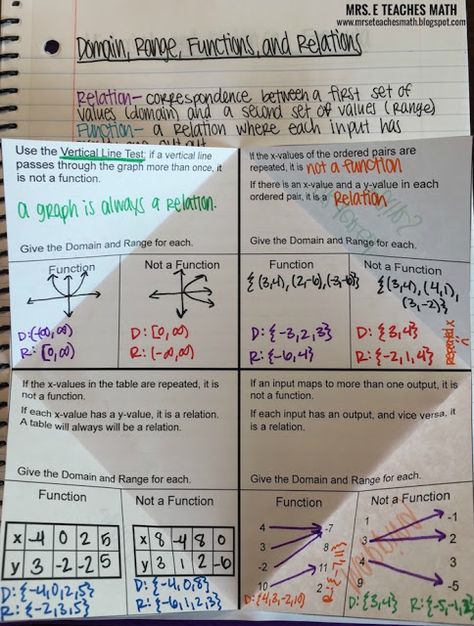 MRS. E TEACHES MATH
www.mrseteachesmath.blogspot.com
Domain, Range, Functions, and Relations
Relation- correspondence between a first set of
values (domain) and a second set of values (range)
Function- a relation where each input has
Use the Vertical Line Test; if a vertical line
passes through the graph more than once, it
is not a function.
a graph is always a relation.
Give the Domain and Range for each.
Function
D: (-∞, ∞)
R: [0, ∞)
Not a Function
D: [0, ∞)
R: (-∞, ∞)
If the x-values of the ordered pairs are
repeated, it is not a function
If there is an x-value and a y-value in each
ordered pair, it is a Relation
Give the Domain and Range for each.
Function
{(3,4), (2,-6), (-3,-6)}
D: {-3, 2, 3}
R: {-6, 4}
Not a Function
{(3,4), (4,1),
(3,-2)}
D: {3,4}
R: {-2, 1, 4}
Repeated x
If the x-values in the table are repeated, it is
not a function.
If each x-value has a y-value, it is a relation.
A table will always will be a relation.
Give the Domain and Range for each.
Function
x -4 0 2 5
y 3 -2 -2 5
D: {-4, 0, 2, 5}
R: {-2, 3, 5}
Not a Function
x 8 -4 8 0
y 3 1 2 -6
D: {-4, 0, 8}
R: {-6, 1, 2, 3}
If an input maps to more than one output, it is
not a function.
If each input has an output, and vice versa, it
is a relation.
Give the Domain and Range for each.
Function
4 -7
3 8
-2 11
10 2
D: {4, 3, -2, 10}
R: {-7, 11}
Not a Function
1 -1
3 2
4 3
9 -5
D: {3, 4}
R: {-5, -1,